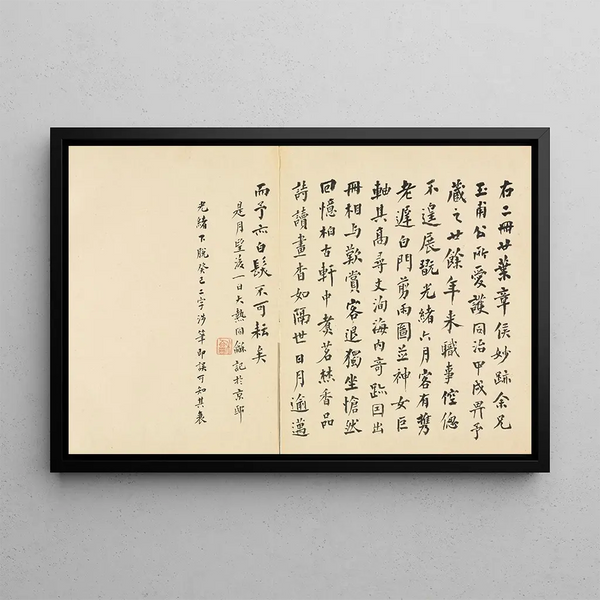 右二冊廿葉章侯妙跡余兄
玉甫公所愛護同治甲戌畀予
藏之廿餘年來職事倥傯
不遑展翫光緒六月客有攜
老遲白門剪雨圖並神女巨
軸其高尋丈洵海內奇跡因出
冊相与歎賞客退獨坐愴然
回憶柏古軒中煑茗爇香品
詩讀畫杳如隔世日月逾邁
而予亦白髮不可耘矣
是月望後一日大熱同龢記於京邸
光緒下脫癸巳二字涉筆即誤可知其衰